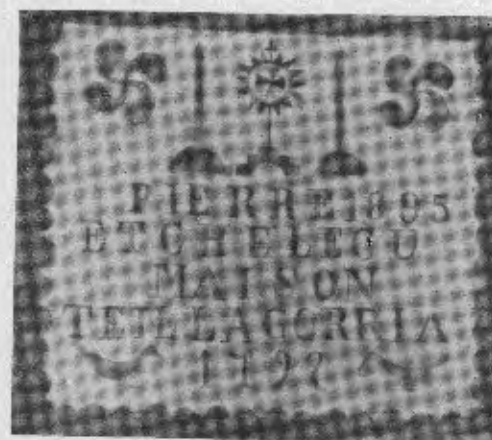 PIERRE 1895
ETCHELECU
MAISON
TEILLAGORRIA
1797